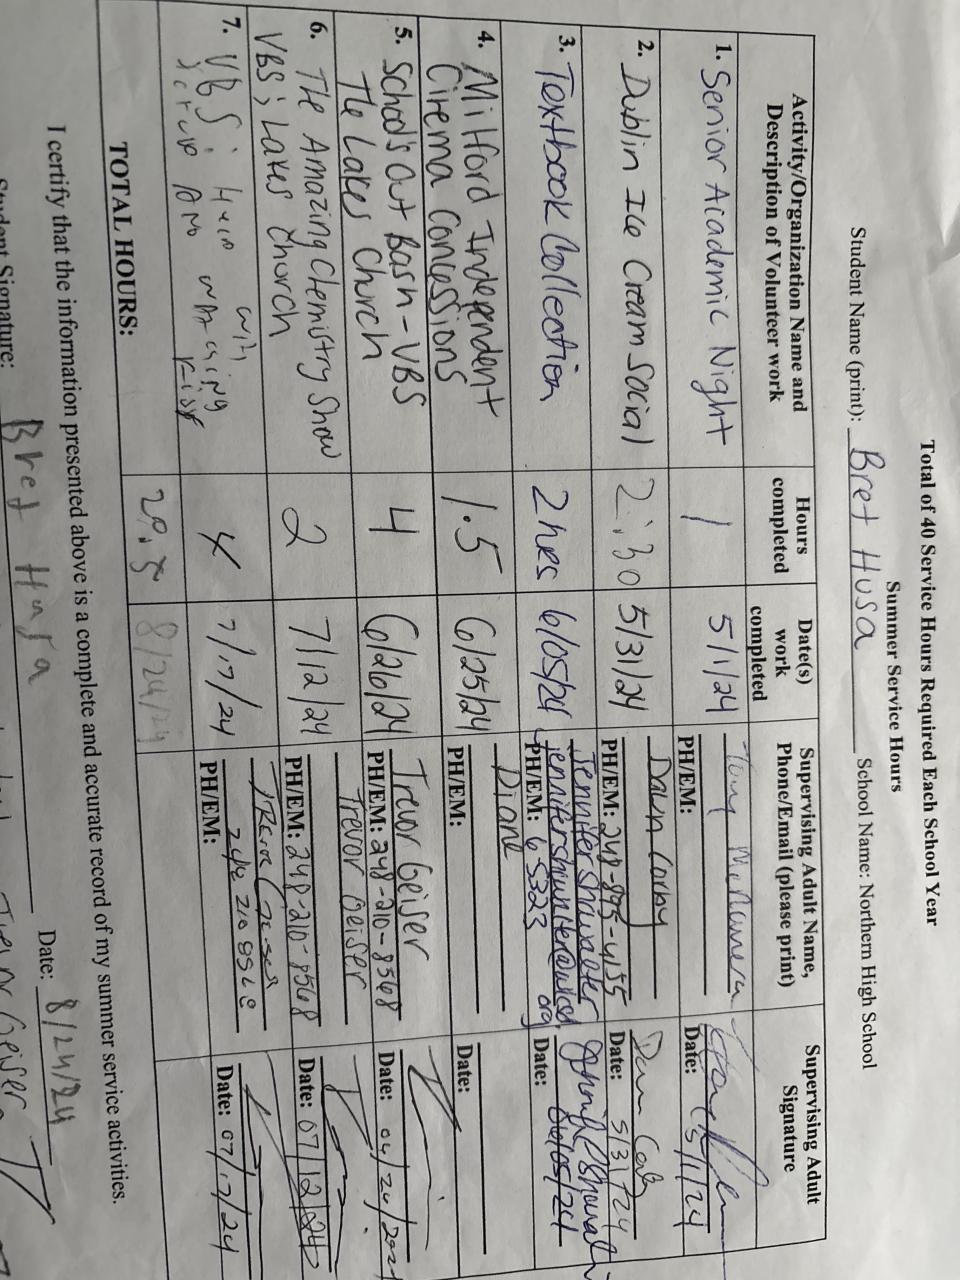 Total of 40 Service Hours Required Each School Year
Summer Service Hours
Student Name (print): Bret Husa School Name: Northern High School
Activity/Organization Name and Description of Volunteer work
Hours completed
Date(s) work completed
Supervising Adult Name, Phone/Email (please print)
Supervising Adult Signature
1. Senior Academic Night
1
5/1/24
Tony
PH/EM:
Date: 5/1/24
2. Dublin Ice Cream Social
2:30
5/31/24
Dawn Corby
PH/EM: 248-895-4155
Date: 5/31/24
3. Textbook Collection
2 hrs
6/05/24
Jennifer
PH/EM: 65323
Date: 06/05/24
4. Milford Independent
Cinema Concessions
1.5
6/25/24
Diane
PH/EM:
Date:
5. School's Out Bash - VBS
The Lakes Church
4
6/26/24
Trevor Geiser
PH/EM: 248-210-8568
Date:
6. The Amazing Chemistry Show
VBS; Lakes Church
2
7/12/24
Trevor Geiser
PH/EM: 248-210-8568
Date: 07/12/24
7. VBS: Help with
setup and
4
7/17/24
PH/EM:
Date: 07/17/24
TOTAL HOURS:
8/24/24
I certify that the information presented above is a complete and accurate record of my summer service activities.
Student Signature: Bret Husa Date: 8/24/24
Trevor Geiser